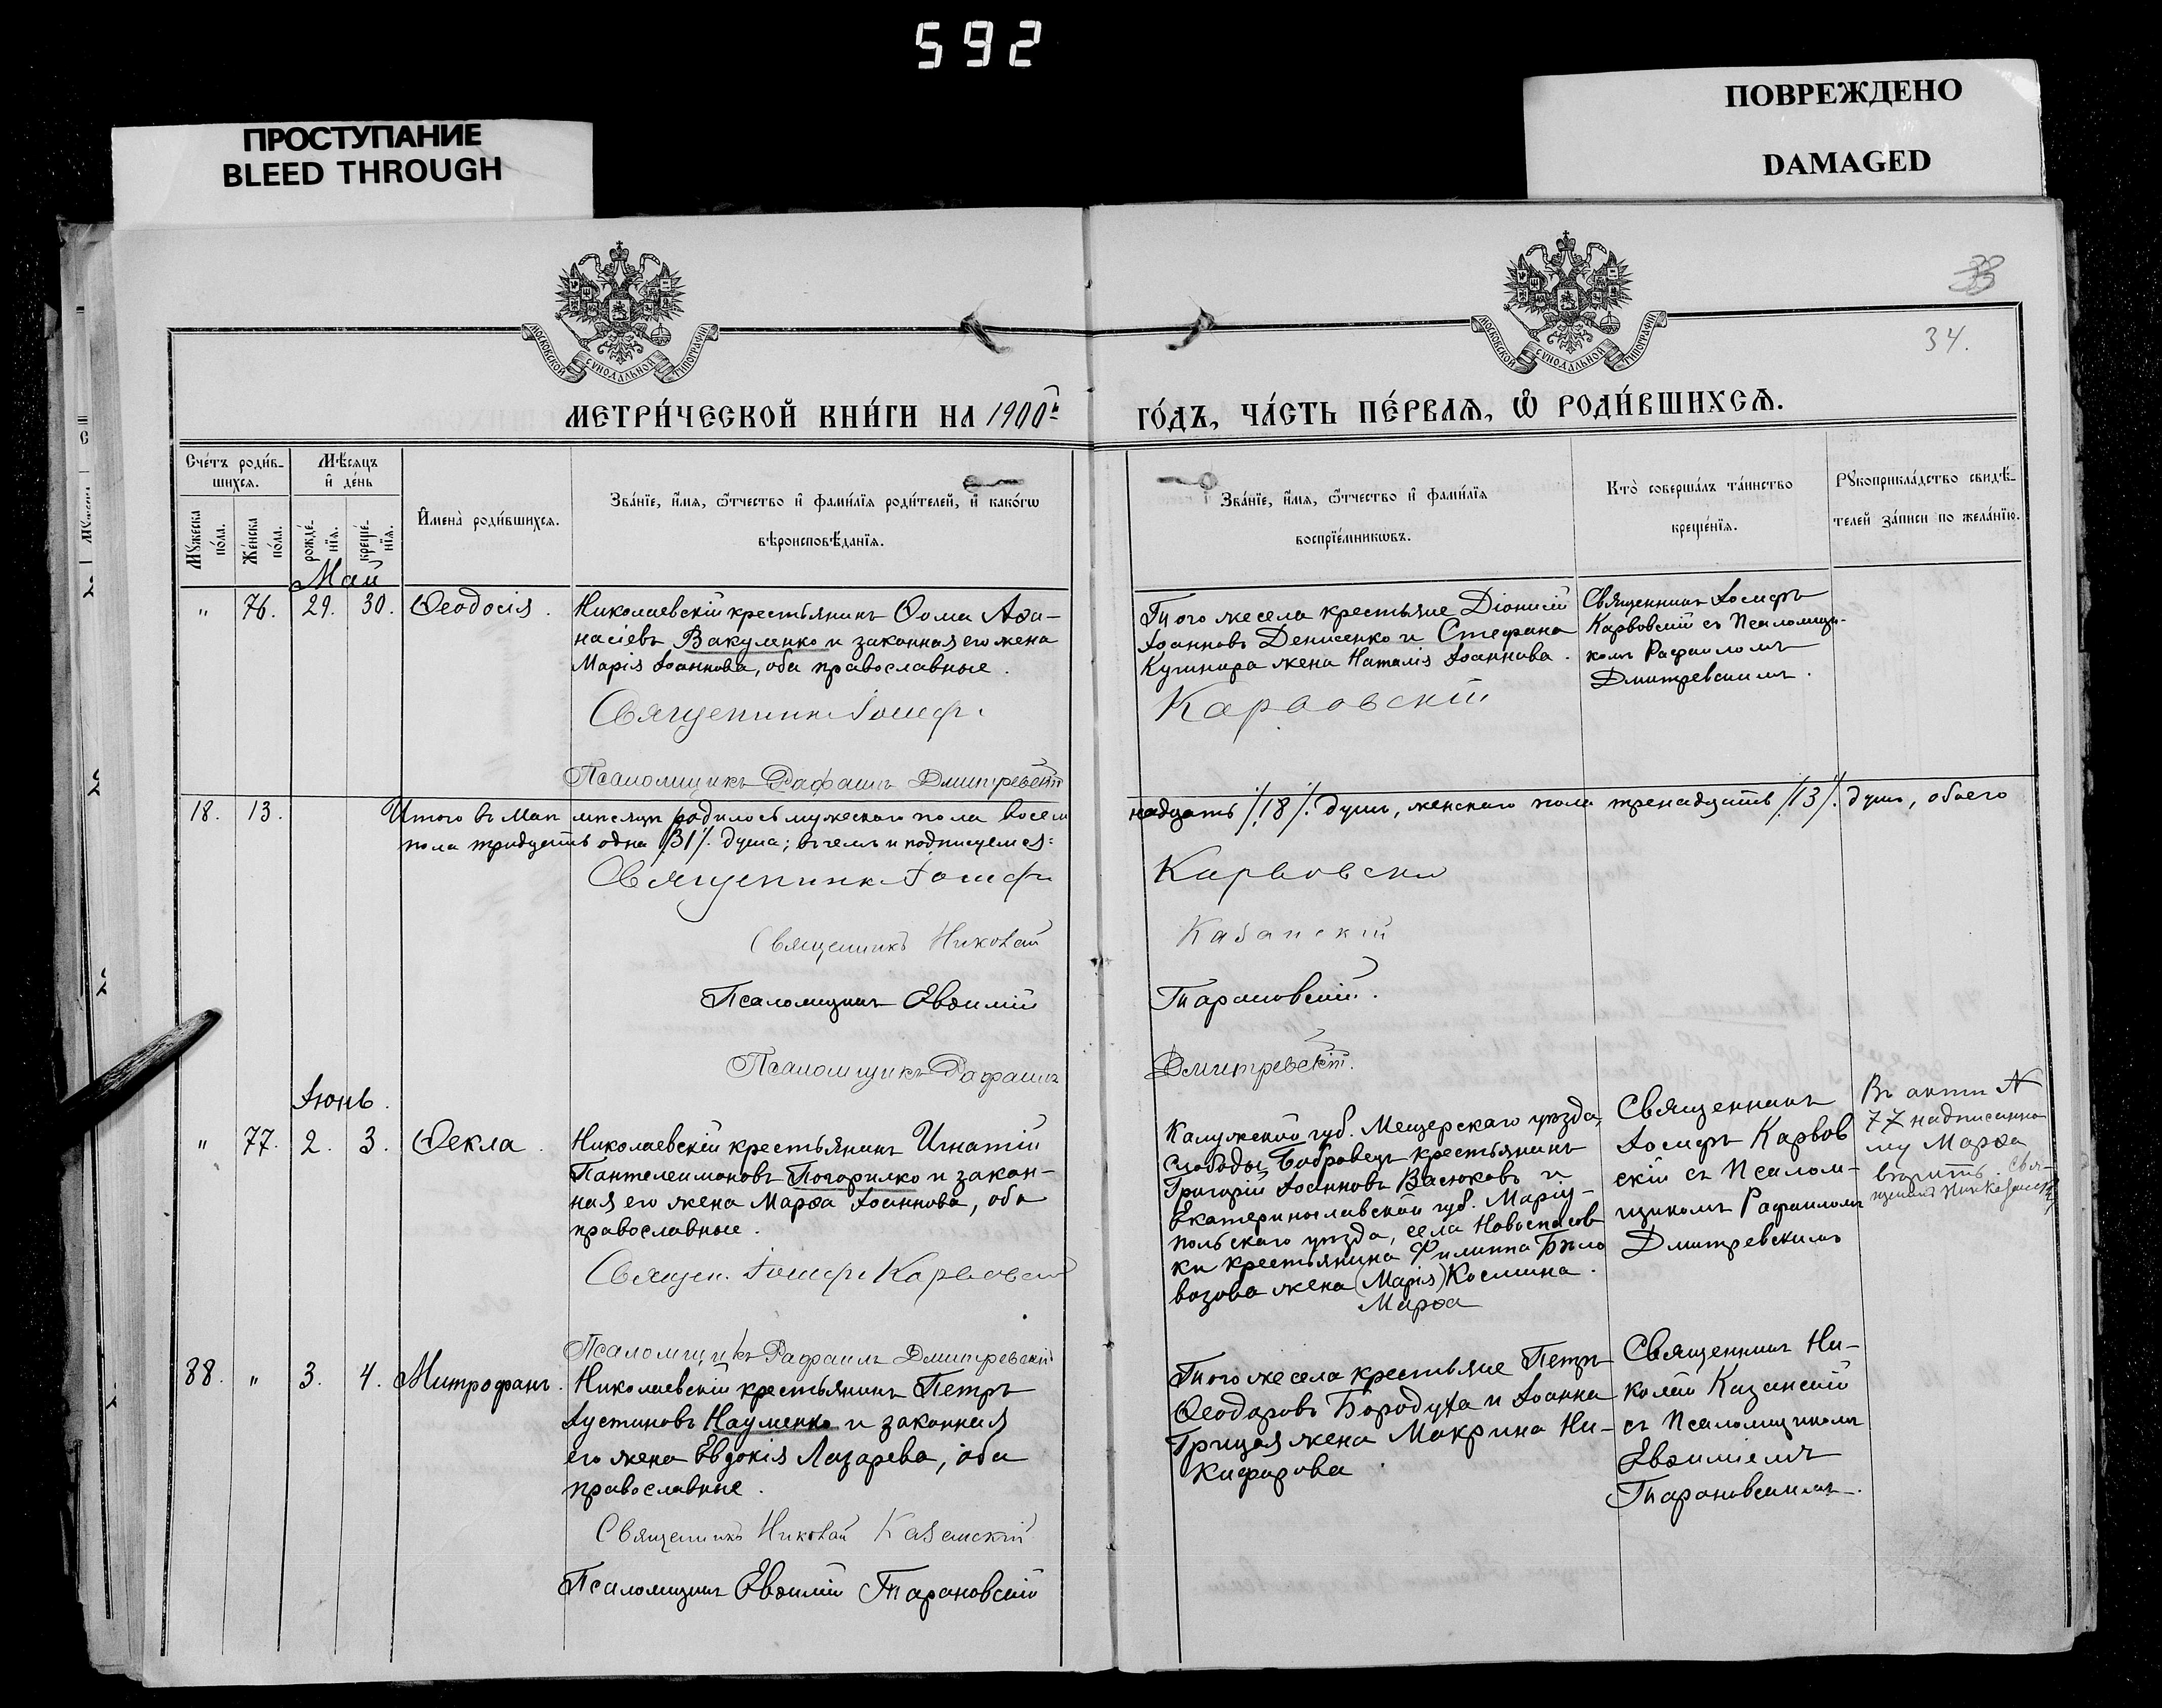 592
ПРОСТУПАНИЕ
BLEED THROUGH
ПОВРЕЖДЕНО
DAMAGED
МОСКОВСКОЙ СѴНОДАЛЬНОЙ ТИПОГРАФІИ
МОСКОВСКОЙ СѴНОДАЛЬНОЙ ТИПОГРАФІИ
33
34.
МЕТРИ́ЧЕСКОЙ КНИ́ГИ НА 1900й
ГО́ДЪ, ЧА́СТЬ ПЕ́РВАѦ, Ѽ РОДИ́ВШИХСѦ.
Сче́тъ роди́в-
шихсѧ.
Мѣ́сѧцъ
и҆ де́нь
Мꙋ́жеска
по́ла.
Же́нска
по́ла.
рожде́-
нїѧ.
креще́-
нїѧ.
И҆мена̀ роди́вшихсѧ.
Зва́нїе, и҆́мѧ, ѻ҆́тчество и҆ фами́лїѧ роди́телей, и҆ како́гѡ
вѣроисповѣ́данїѧ.
Зва́нїе, и҆́мѧ, ѻ҆́тчество и҆ фами́лїѧ
воспрїе́мникѡвъ.
Кто̀ соверша́лъ та́инство
креще́нїѧ.
Рꙋкоприкла́дство свидѣ́-
телей за́писи по жела́нїю.
Май
" 76. 29. 30. Ѳеодосія.
Николаевскій крестьянинъ Ѳома Аѳа-
насіевъ Вакуленко и законная его жена
Марія Іоаннова, оба православные.
Священникъ Іосифъ
Псаломщикъ Рафаилъ Дмитревскій
Того же села крестьяне Діонисій
Іоанновъ Денисенко и Стефана
Кушнира жена Наталія Іоаннова.
Карвовскій
Священникъ Іосифъ
Карвовскій съ Псаломщи-
комъ Рафаиломъ
Дмитревскимъ.
18. 13. Итого въ Маѣ мѣсяцѣ родилось мужескаго пола восем
надцать /.18/. душъ, женскаго пола тренадцать /.13/. душъ, обоего
пола тридцать одна /.31/. душа; въ чемъ и подписуемся:
Священникъ Іосифъ
Карвовскій
Священникъ Николай
Казанскій
Псаломщикъ Евѳимій
Тарановскій.
Псаломщикъ Рафаилъ
Дмитревскій.
Іюнь.
" 77. 2. 3. Ѳекла.
Николаевскій крестьянинъ Игнатій
Пантелеимоновъ Погорилко и закон-
ная его жена Марѳа Іоаннова, оба
православные.
Священ. Іосифъ Карвовскій
Псаломщикъ Рафаилъ Дмитревскій
Калужской губ. Мещерскаго уѣзда,
Слободы Бобровецъ крестьянинъ
Григорій Іоанновъ Васюковъ и
Екатеринославской губ. Маріу-
польскаго уѣзда, села Новоспасов
ки крестьянина Филиппа Бѣло
возова жена (Марія) Космина.
Марѳа
Священникъ
Іосифъ Карвов
скій съ Псалом-
щикомъ Рафаиломъ
Дмитревскимъ
Въ актѣ N
77 надписанно
му Марѳа
вѣрить. Свя-
щенникъ Ник Казанскій
88. " 3. 4. Митрофанъ.
Николаевскій крестьянинъ Петръ
Іустиновъ Науменко и законная
его жена Евдокія Лазарева, оба
православные.
Священникъ Николай Казанскій
Псаломщикъ Евѳимій Тарановскій
Того же села крестьяне Петръ
Ѳеодоровъ Бородуха и Іоанна
Грицая жена Макрина Ни-
кифорова
Священникъ Ни-
колай Казанскій
съ Псаломщикомъ
Евѳиміемъ
Тарановскимъ.